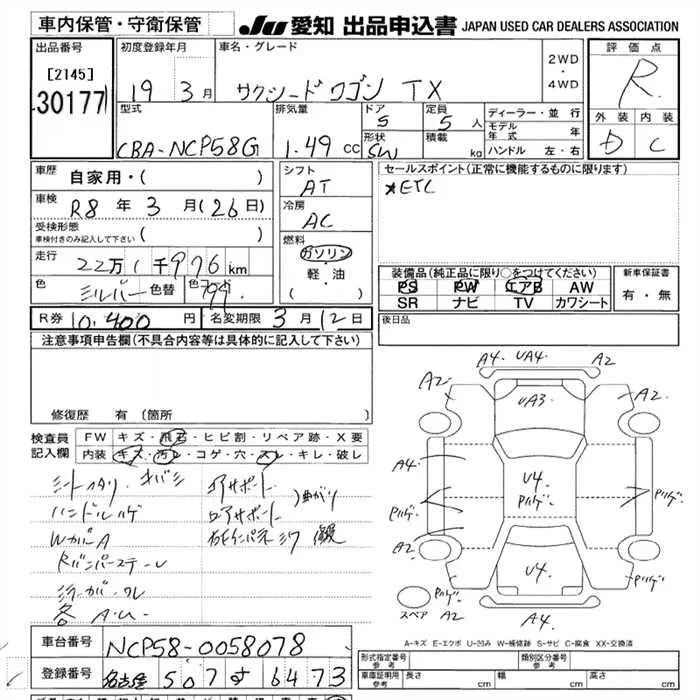 車内保管・守衛保管
JU 愛知 出品申込書 JAPAN USED CAR DEALERS ASSOCIATION
出品番号
[2145]
30177
初度登録年月
19 3月
車名・グレード
サクシードワゴン TX
2WD
・
4WD
評価点
R
外装 内装
D C
型式
CBA-NCP58G
排気量
1.49 cc
ドア
5
定員
5 人
形状
SW
積載
kg
ディーラー・並行
モデル年式 年
ハンドル 左・右
車歴
自家用・( )
車検
R8 年 3 月(26日)
受検形態
車検付きのみ記入して下さい ( )
走行
22万1千976 km
色
シルバー
色替
シフト
AT
冷房
AC
燃料
ガソリン
・
軽・油
( )
セールスポイント(正常に機能するものに限ります)
*ETC
装備品(純正品に限り○をつけてください)
PS PW エアB AW
SR ナビ TV カワシート
新車保証書
有・無
R券 10,400 円
名変期限 3月12日
後日品
注意事項申告欄(不具合内容等は具体的に記入して下さい)
修復歴 有 〔箇所 〕
検査員記入欄
FW キズ・飛石・ヒビ割・リペア跡・X要
内装 キズ・汚レ・コゲ・穴・スレ・キレ・破レ
ハンドルハゲ
WカバーA
A2 A4 UA4 A2
UA3
A2
A4
U4
A2
U4
A4
スペア A2
A-キズ E-エクボ U-凹み W-補修跡 S-サビ C-腐食 XX-交換済
車台番号 NCP58-0058078
登録番号 名古屋 507 す 6473
形式指定番号 参考
類別区分番号 参考
車庫証明用 参考 長さ cm 幅 cm 高さ cm